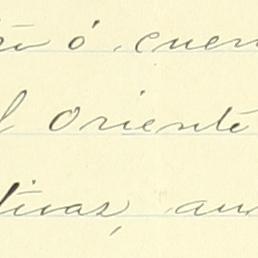 ó cuen
l oriente
tivas, au